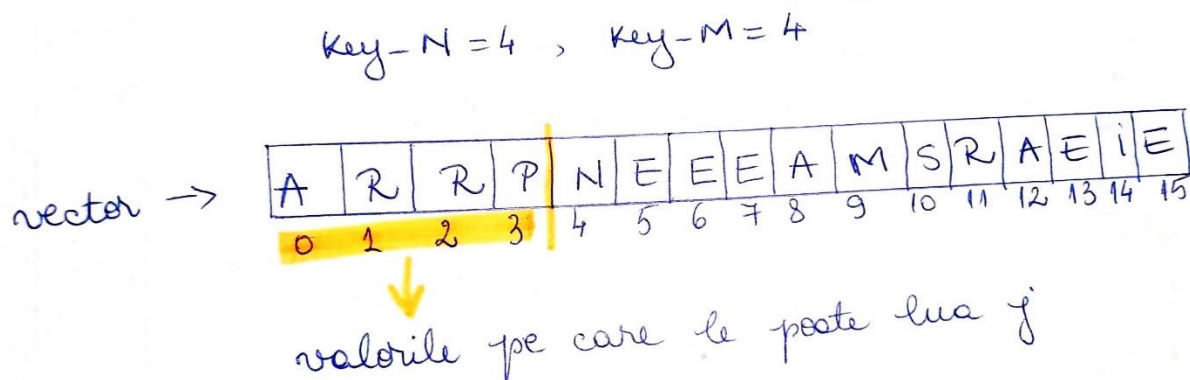 Key-N = 4 , Key-M = 4
vector → A R R P N E E E A M S R A E i E
0 1 2 3 4 5 6 7 8 9 10 11 12 13 14 15
valorile pe care le poate lua j